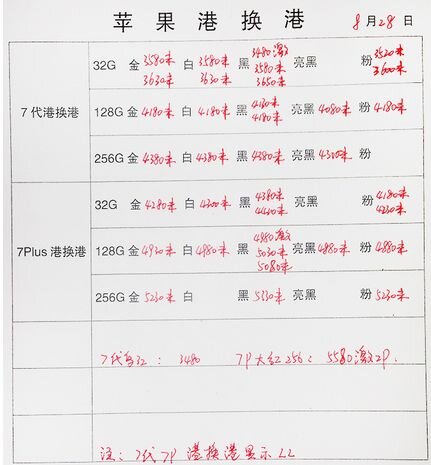 苹果港换港 8月28日
3480激 3520未
32G 金 3580未 白 3580未 黑 3580未 亮黑 粉 3600未
3630未 3630未 3650未
7代港换港 128G 金 4180未 白 4180未 黑 4130未 亮黑 4080未 粉 4180未
4180未
256G 金 4380未 白 4380未 黑 4380未 亮黑 4300未 粉
32G 金 4280未 白 4300未 黑 4380未 亮黑 粉 4180未
4400未 4230未
4980激
7Plus 港换港 128G 金 4930未 白 4980未 黑 5030未 亮黑 4880未 粉 4880未
5080未
256G 金 5230未 白 黑 5330未 亮黑 粉 5230未
7代 32: 3480 7P大红256: 5580激2P.
注: 7代7P 港换港显示LL